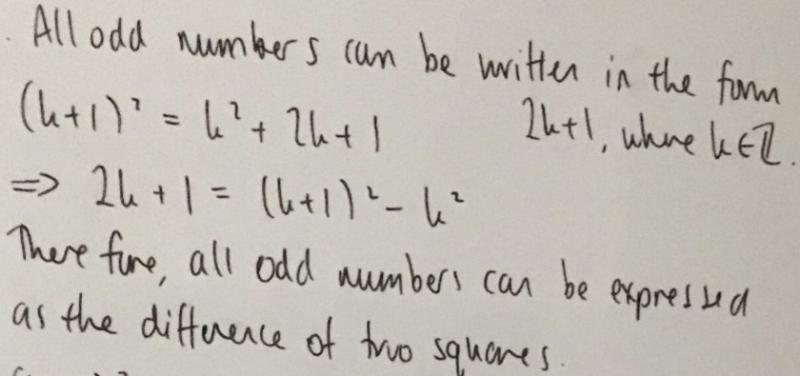 All odd numbers can be written in the form
2k+1, where k∈ℤ.
(k+1)² = k² + 2k + 1
=> 2k + 1 = (k+1)² - k²
Therefore, all odd numbers can be expressed
as the difference of two squares.